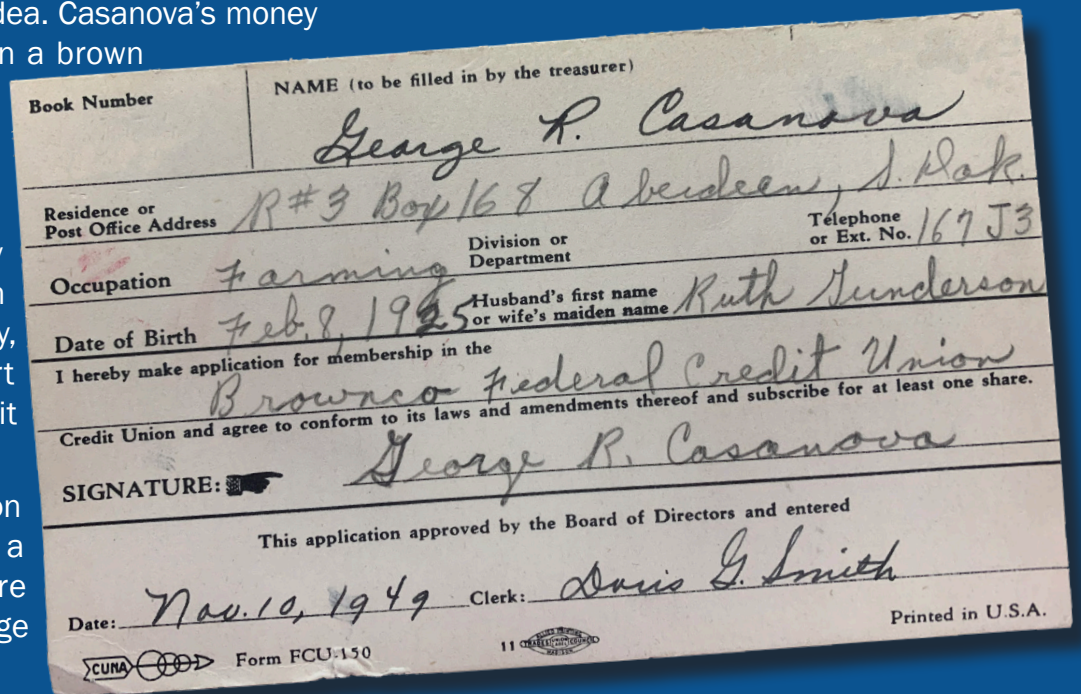 dea. Casanova's money
n a brown
Book Number
NAME (to be filled in by the treasurer)
George R. Casanova
Residence or
Post Office Address R#3 Box 168 Aberdeen, S. Dak.
Occupation Farming
Division or
Department
Telephone
or Ext. No. 167 J3
Date of Birth Feb. 8, 1925
Husband's first name
or wife's maiden name Ruth Gunderson
I hereby make application for membership in the
Brownco Federal Credit Union
Credit Union and agree to conform to its laws and amendments thereof and subscribe for at least one share.
SIGNATURE: George R. Casanova
This application approved by the Board of Directors and entered
Date: Nov. 10, 1949 Clerk: Doris G. Smith
CUNA Form FCU-150
11
Printed in U.S.A.
y,
rt
it
on
a
re
ge